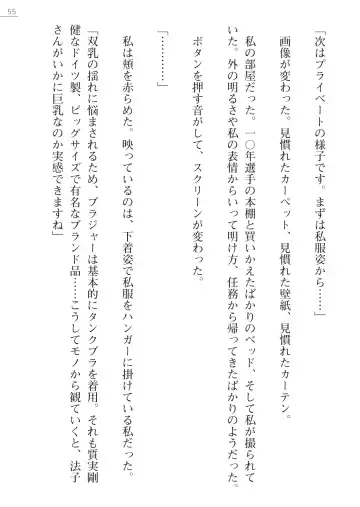 55
「次はプライベートの様子です。まずは私服姿から……」
画像が変わった。見慣れたカーペット、見慣れた壁紙、見慣れたカーテン。
私の部屋だった。一〇年選手の本棚と買いかえたばかりのベッド、そして私が撮られて
いた。外の明るさや私の表情からいって明け方、任務から帰ってきたばかりのようだった。
ボタンを押す音がして、スクリーンが変わった。
「…………」
私は頬を赤らめた。映っているのは、下着姿で私服をハンガーに掛けている私だった。
「双乳の揺れに悩まされるため、ブラジャーは基本的にタンクブラを着用。それも質実剛
健なドイツ製、ビッグサイズで有名なブランド品……こうしてモノから観ていくと、法子
さんがいかに巨乳なのか実感できますね」